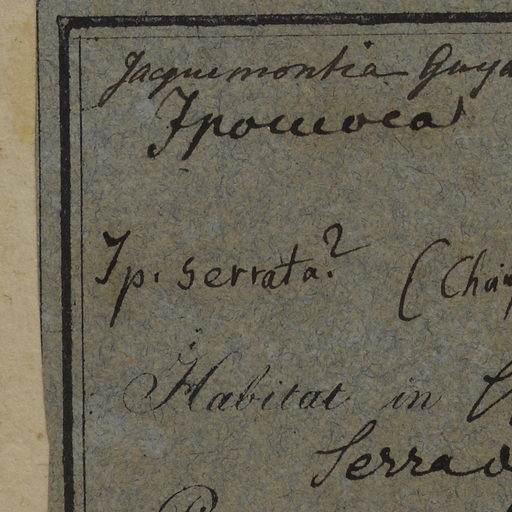 Jacquemontia Guya
Ipomoea
Ip. serrata? (Cha
Habitat in
Serra d